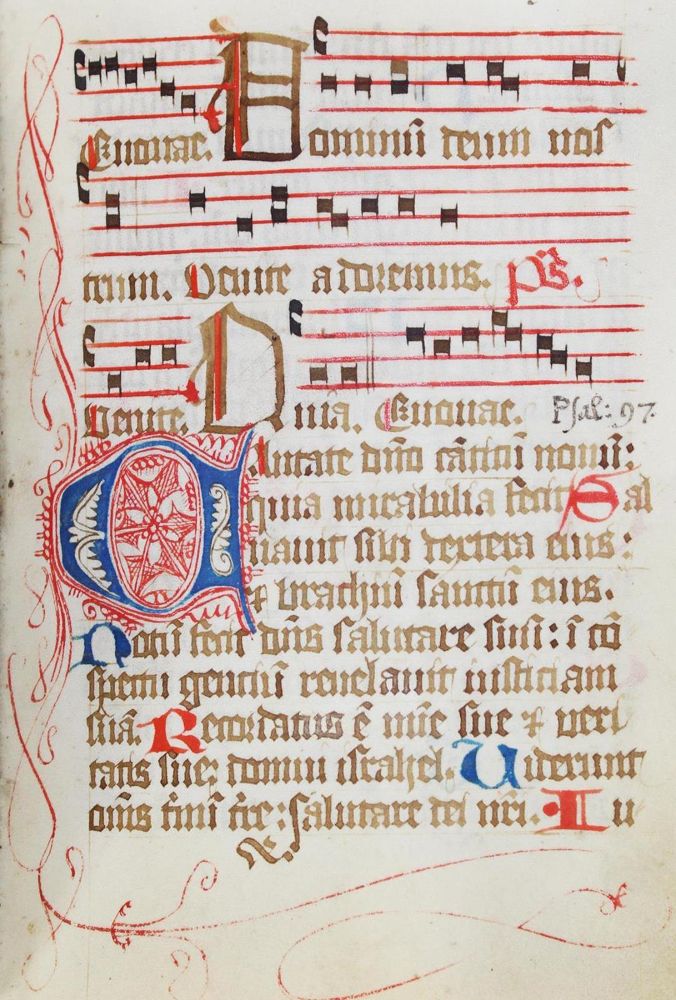 Euouae. Dominū deum nos
trum. Venite adoremus. Ps.
Venite. D nīa. Euouae. Psal: 97.
Cantate dn̄o cāticū nouū:
quia mirabilia fecit Sal
uauit sibi dextera eius:
⁊ brachiū sanctū eius.
Notū fecit dn̄s salutare suū: ī cō
spectu gentiū reuelauit iusticiam
suā. Recordatus ē mīe sue ⁊ veri
tatis sue: domui israhel. Viderunt
om̄s t̄mī t̄re: salutare dei nr̄i. Iu